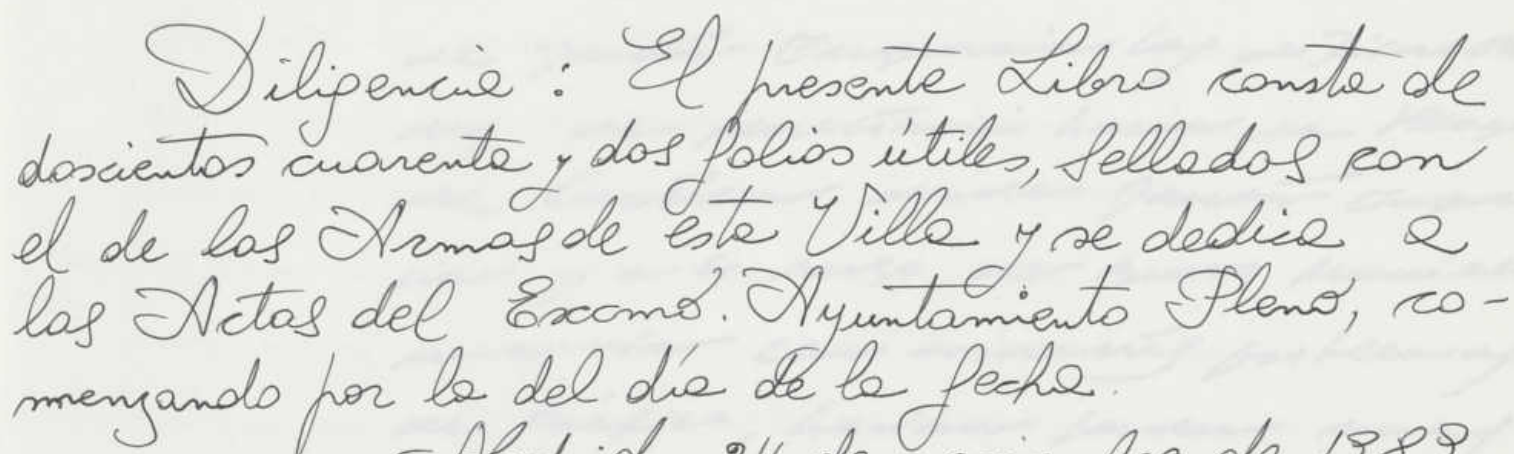 Diligencia: El presente Libro consta de
doscientos cuarenta y dos folios útiles, sellados con
el de las Armas de esta Villa y se dedica a
las Actas del Excmo. Ayuntamiento Pleno, co-
menzando por la del día de la fecha.
Madrid, 24 de de